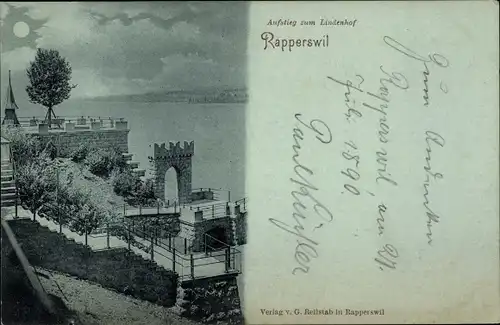 Aufstieg zum Lindenhof
Rapperswil
Zum Andenken
Rapperswil, am 24.
Juli 1890.
Paul
Verlag v. G. Beilstab in Rapperswil